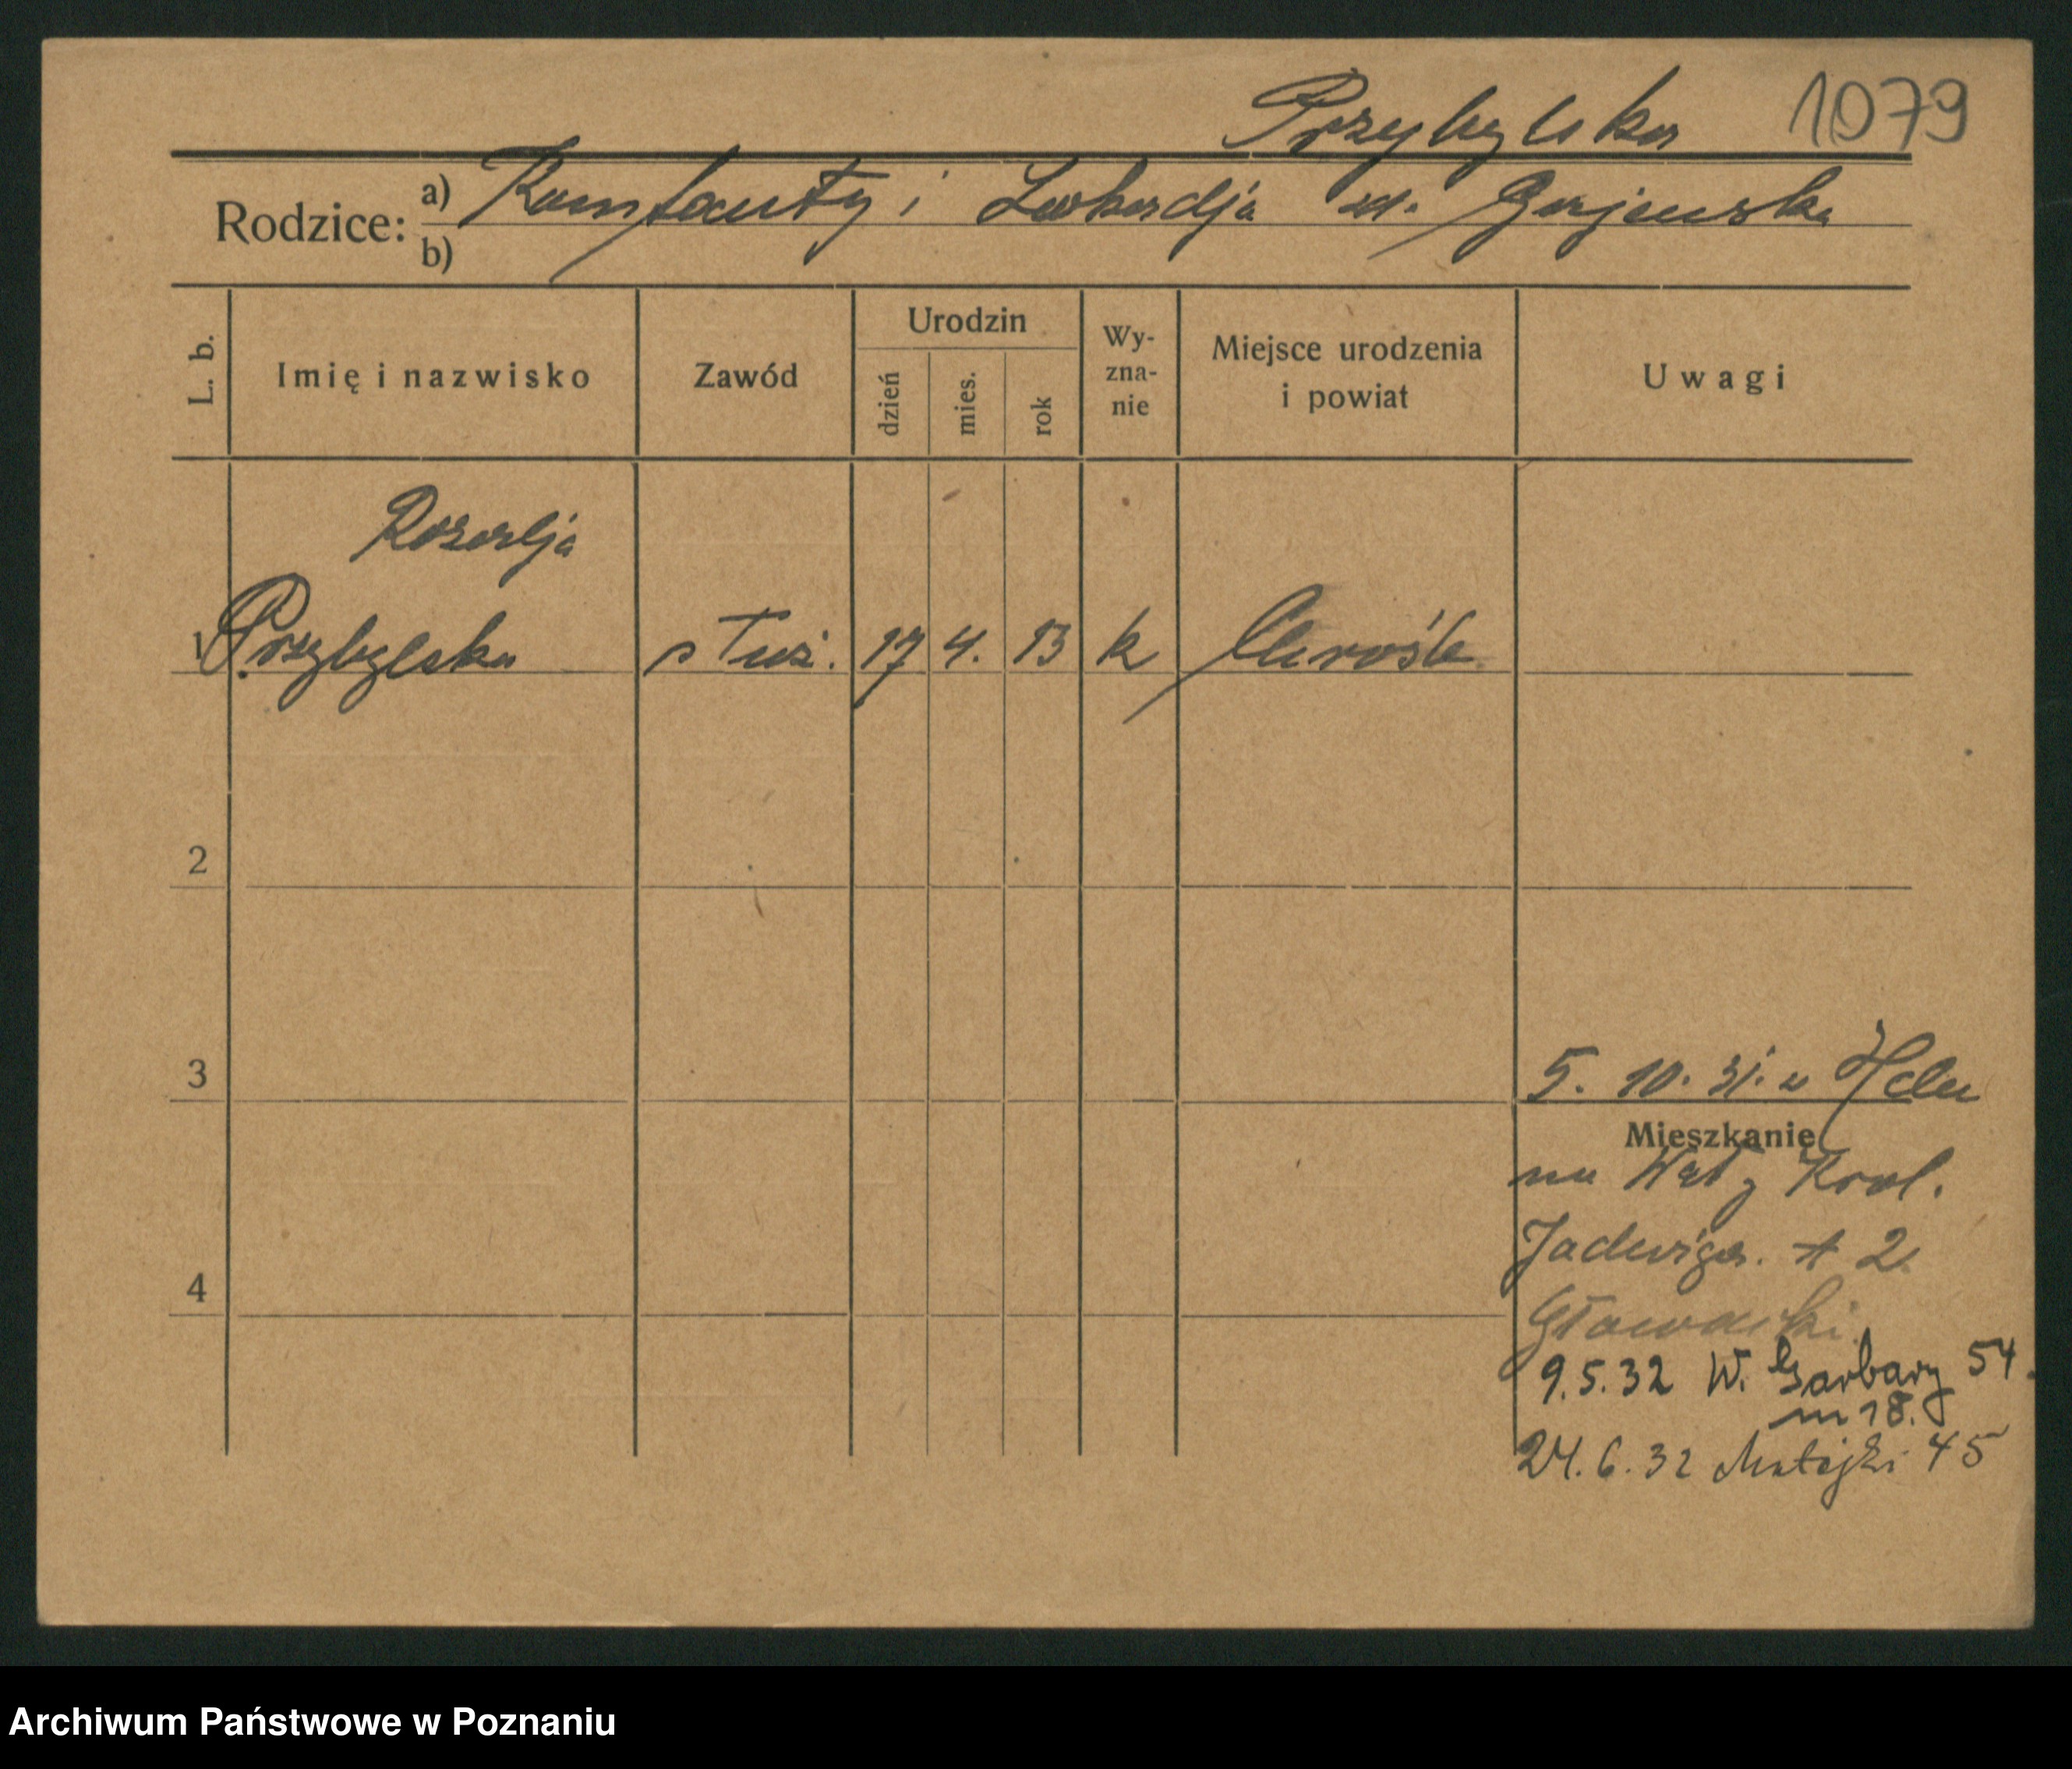 Przybylska 1079
Rodzice: a) i z d. Gajewska
b)
L. b. Imię i nazwisko Zawód Urodzin dzień mies. rok Wy-zna-nie Miejsce urodzenia i powiat Uwagi
Rozalja
1 Przybylska służ. 17 4. 13 k
2
3
5. 10. 31. z
Mieszkanie
na Wały Król.
Jadwigi. 2.
4
9.5.32 W. Garbary 54.
m 18.
24.6.32 Matejki 45
Archiwum Państwowe w Poznaniu